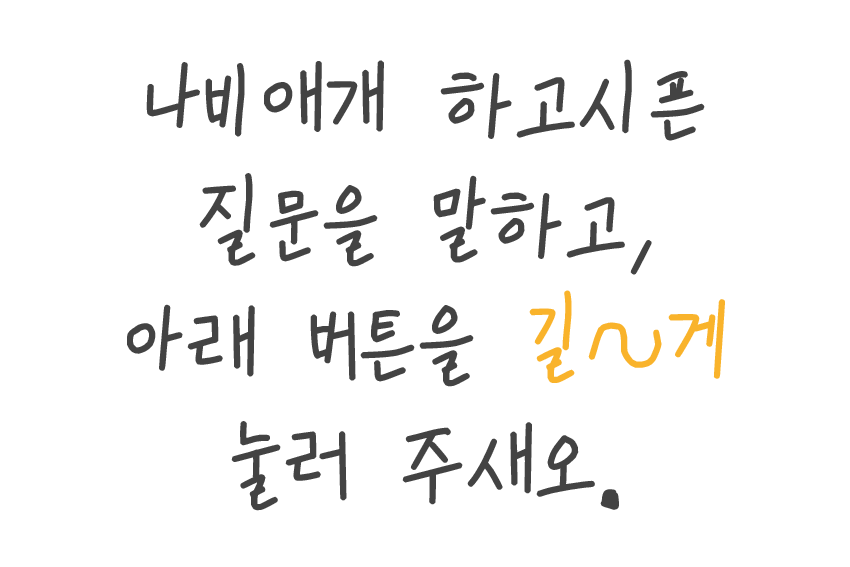 나비애개 하고시픈
질문을 말하고,
아래 버튼을 길~게
눌러 주새오.